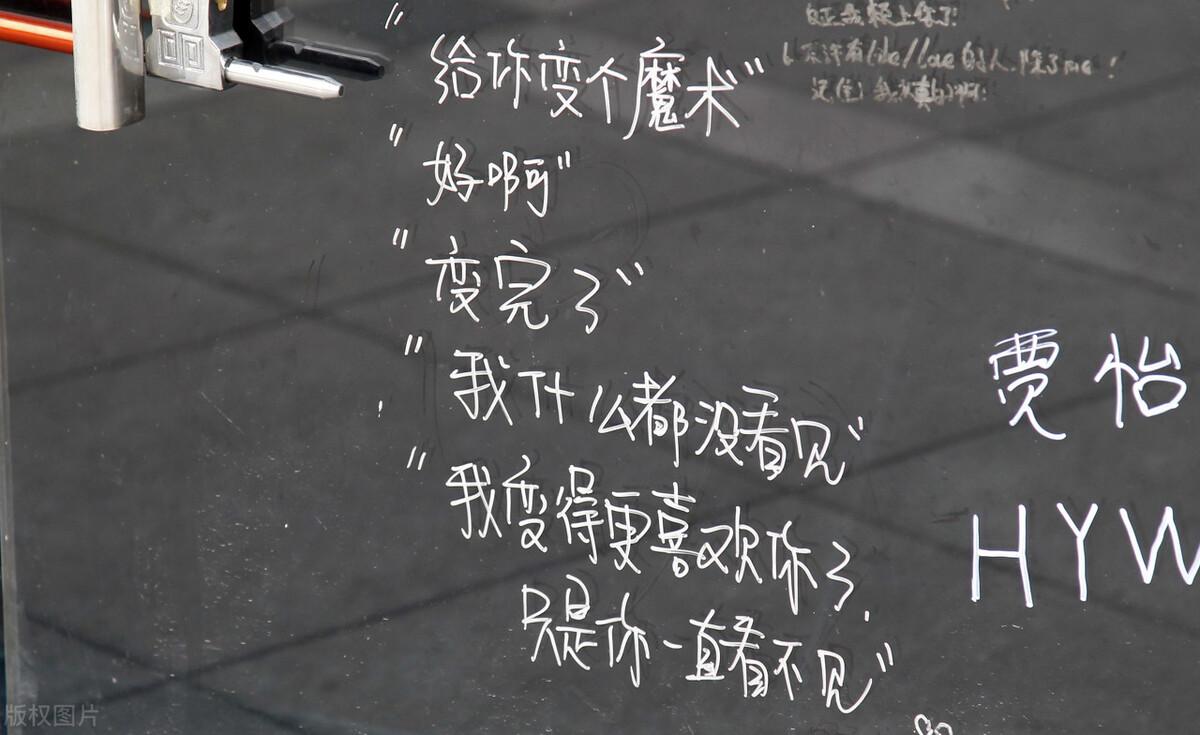 "给你变个魔术"
"好啊"
"变完了"
"我什么都没看见"
"我变得更喜欢你了.
只是你一直看不见"
贾怡
HYW
版权图片